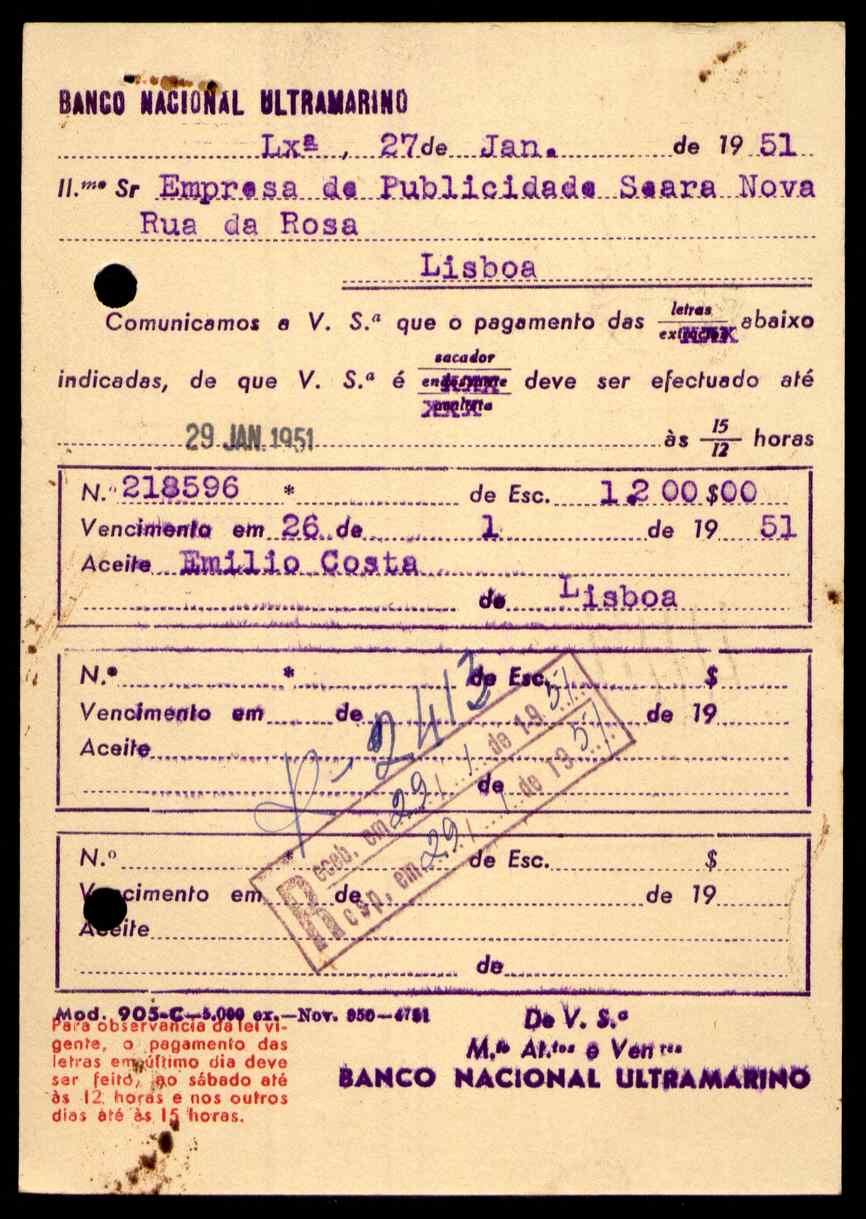 BANCO NACIONAL ULTRAMARINO
Lxª, 27 de Jan. de 1951
Il.ᵐᵒ Sr Empresa de Publicidade Seara Nova
Rua da Rosa
Lisboa
Comunicamos a V. S.ª que o pagamento das letras abaixo
indicadas, de que V. S.ª é sacador deve ser efectuado até
29 JAN. 1951 às 15/12 horas
N.º 218596 * de Esc. 1.200$00
Vencimento em 26 de 1 de 1951
Aceite Emilio Costa
de Lisboa
N.º * de Esc. $
Vencimento em de de 19
Aceite
de
R-2413
Receb. em 29/1 de 1951
Resp. em 29/1 de 1951
N.º * de Esc. $
Vencimento em de de 19
Aceite
de
Mod. 905-C—5.000 ex.—Nov. 950—4751
Para observancia da lei vi-
gente, o pagamento das
letras em últtimo dia deve
ser feito, ao sábado até
às 12 horas e nos outros
dias até às 15 horas.
De V. S.ª
M.ᵗᵒ At.ᵗᵒˢ e Ven.ʳᵉˢ
BANCO NACIONAL ULTRAMARINO